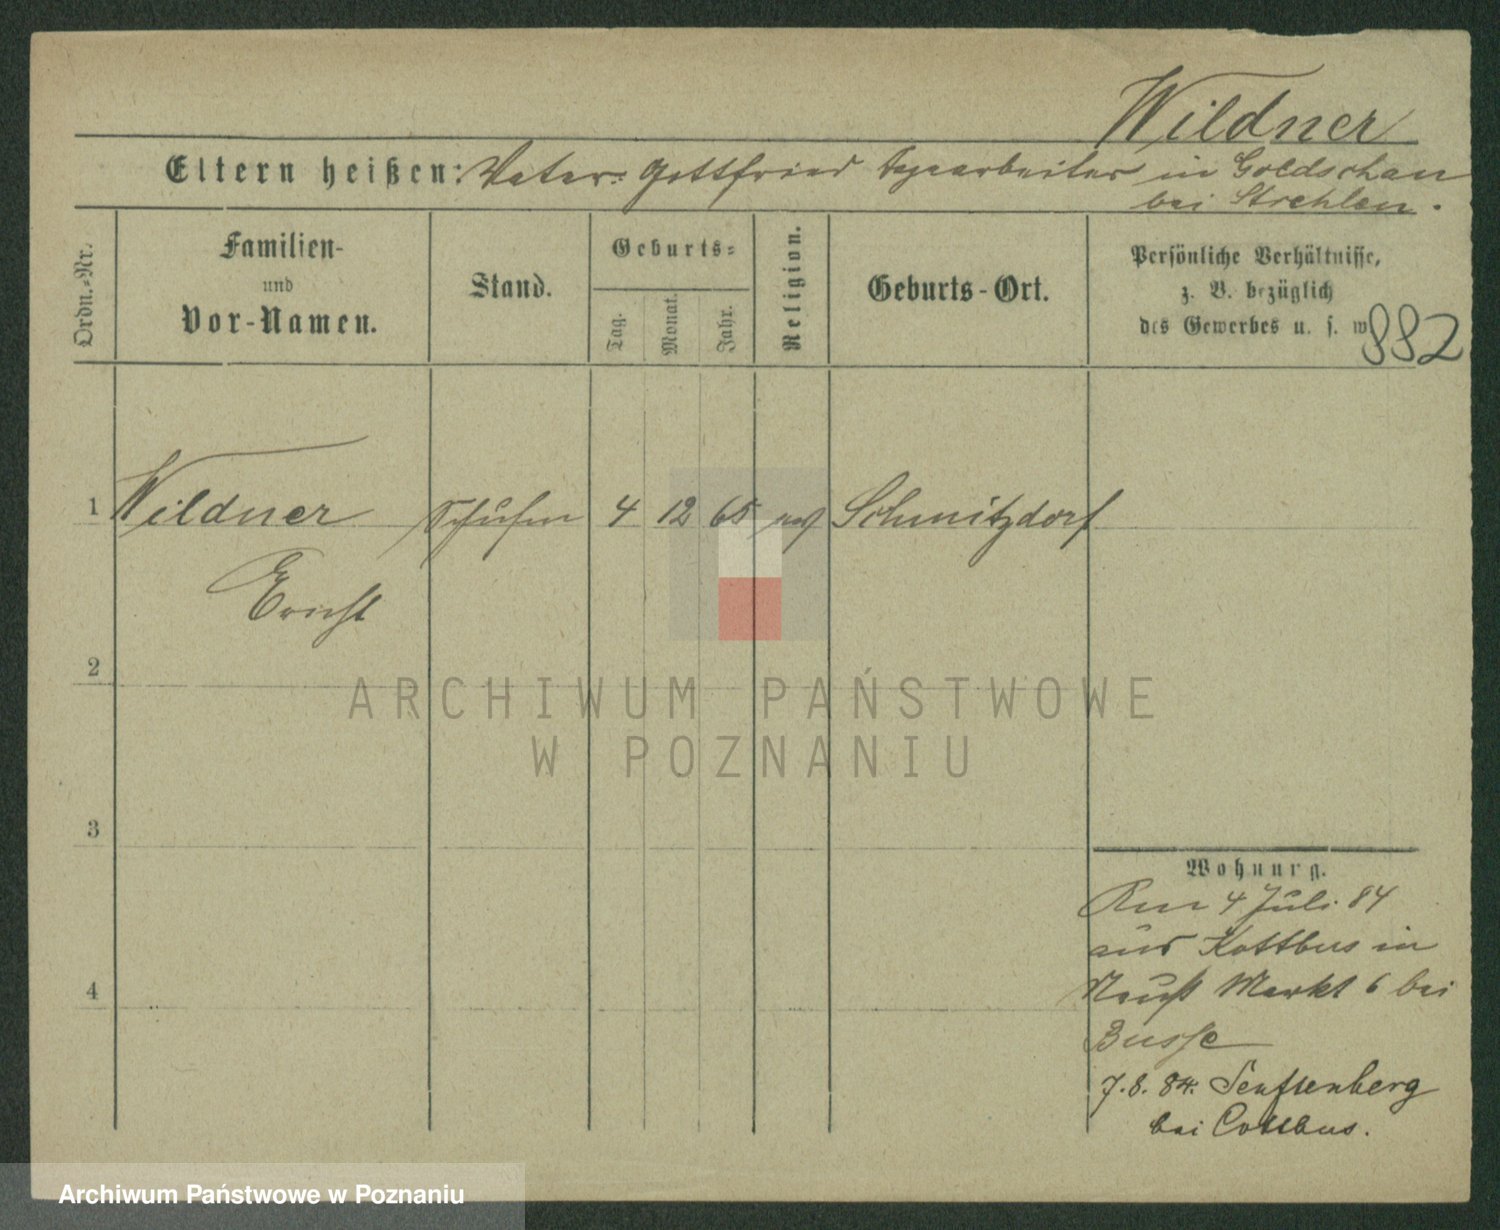 Wildner
Eltern heißen: Vater: Gottfried in Goldschau
bei Strehlen.
Ordn.-Nr.
Familien-
und
Vor-Namen.
Stand.
Geburts-
Tag.
Monat.
Jahr.
Religion.
Geburts-Ort.
Persönliche Verhältnisse,
z. B. bezüglich
des Gewerbes u. s. w
882
1 Wildner 4 12 65 Schmitzdorf
2
3
4
Wohnung.
4 Juli 84
aus Kottbus in
Neust Markt 6 bei
Busse
7.8.84. Senftenberg
bei Cottbus.
ARCHIWUM PAŃSTWOWE
W POZNANIU
Archiwum Państwowe w Poznaniu